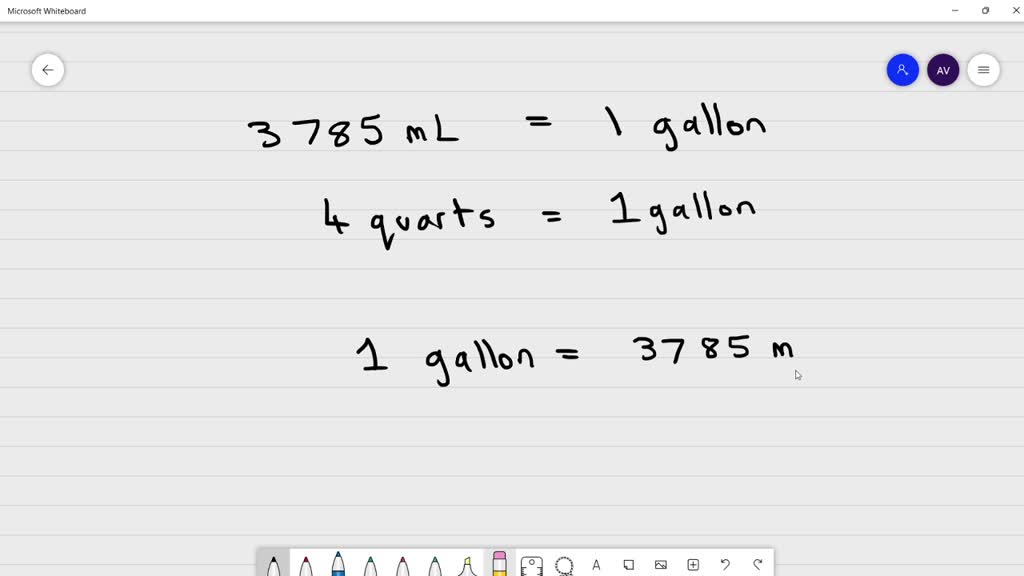 Microsoft Whiteboard
AV
3785 mL = 1 gallon
4 quarts = 1 gallon
1 gallon = 3785 m
A